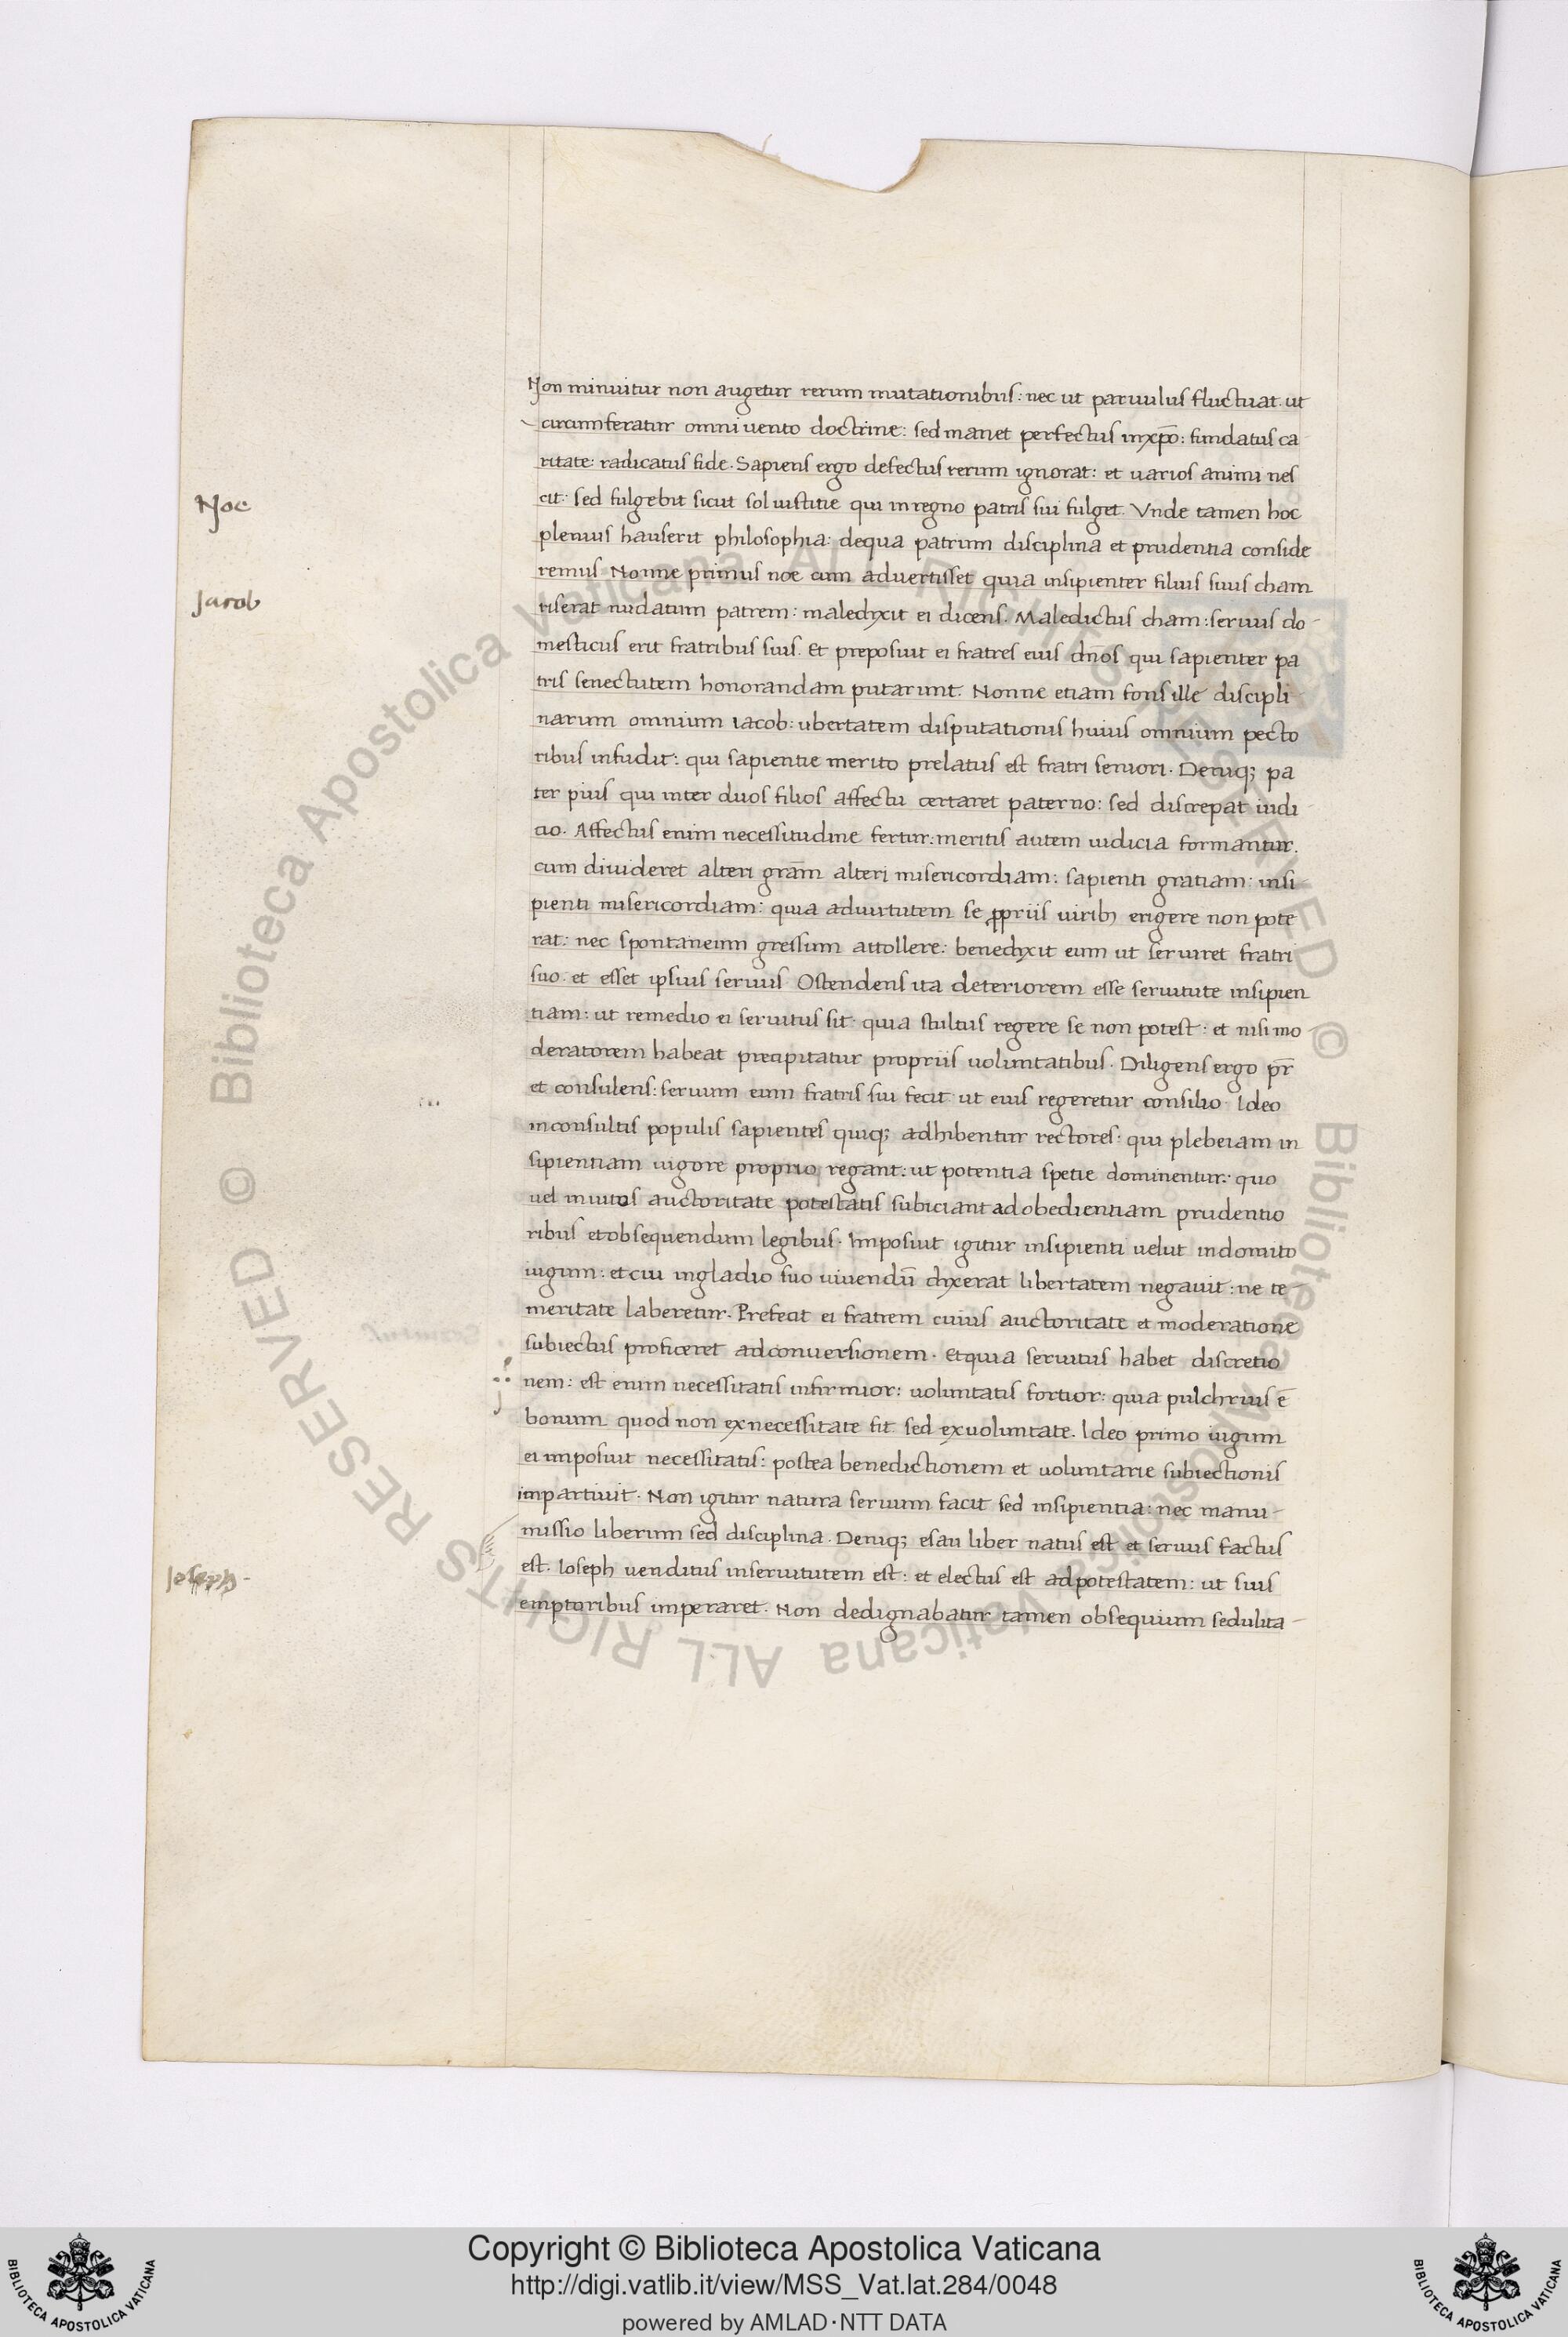 Non minuitur non augetur rerum mutationibus: nec ut paruulus fluctuat. ut
circumferatur omni uento doctrine: sed manet perfectus in xp̄o: fundatus ca
ritate: radicatus fide. Sapiens ergo defectus rerum ignorat: et uarios animi nes
cit: sed fulgebit sicut sol iustitie qui in regno patris sui fulget. Vnde tamen hoc
Noe
plenius hauserit philosophia: de qua patrum disciplina et prudentia conside
remus Nonne primus noe cum aduertisset quia insipienter filius suus cham
Jacob
riserat nudatum patrem: maledixit ei dicens. Maledictus cham: seruus do-
mesticus erit fratribus suis. Et preposuit ei fratres eius dn̄os qui sapienter pa
tris senectutem honorandam putarunt. Nonne etiam fons ille discipli-
narum omnium iacob: ubertatem disputationis huius omnium pecto
ribus infudit: qui sapientie merito prelatus est fratri seniori. Deniq; pa
ter pius qui inter duos filios affectu certaret paterno: sed discrepat iudi
cio. Affectus enim necessitudine fertur: meritis autem iudicia formantur.
cum diuideret alteri grām alteri misericordiam: sapienti gratiam: insi-
pienti misericordiam: quia ad uirtutem se ꝓpriis uirib; erigere non pote
rat: nec spontaneum gressum attollere: benedixit eum ut seruiret fratri
suo. et esset ipsius seruus Ostendens ita deteriorem esse seruitute insipien
tiam: ut remedio ei seruitus sit: quia stultus regere se non potest: et nisi mo-
deratorem habeat precipitatur propriis uoluntatibus. Diligens ergo pr̄
et consulens: seruum eum fratris sui fecit ut eius regeretur consilio. Ideo
inconsultis populis sapientes quiq; adhibentur rectores: qui plebeiam in
sipientiam uigore proprio regant: ut potentia spetie dominentur: quo
uel inuitos auctoritate potestatis subiciant ad obedientiam prudentio
ribus et obsequendum legibus. Imposuit igitur insipienti uelut indomito
iugum: et cui in gladio suo uiuendū dixerat libertatem negauit: ne te-
meritate laberetur. Prefecit ei fratrem cuius auctoritate et moderatione
subiectus proficeret ad conuersionem. Et quia seruitus habet discretio
nem: est enim necessitatis infirmior: uoluntatis fortior: quia pulchrius ē
bonum quod non ex necessitate fit sed ex uoluntate. Ideo primo iugum
ei imposuit necessitatis: postea benedictionem et uoluntarie subiectionis
impartiuit. Non igitur natura seruum facit sed insipientia: nec manu-
missio liberum sed disciplina. Deniq; esau liber natus est et seruus factus
Joseph-
est. Ioseph uenditus in seruitutem est: et electus est ad potestatem: ut suis
emptoribus imperaret. Non dedignabatur tamen obsequium sedulita-
© Biblioteca Apostolica Vaticana ALL RIGHTS RESERVED © Biblioteca Apostolica Vaticana ALL RIGHTS RESERVED
Copyright © Biblioteca Apostolica Vaticana
http://digi.vatlib.it/view/MSS_Vat.lat.284/0048
powered by AMLAD·NTT DATA
BIBLIOTECA APOSTOLICA VATICANA
BIBLIOTECA APOSTOLICA VATICANA